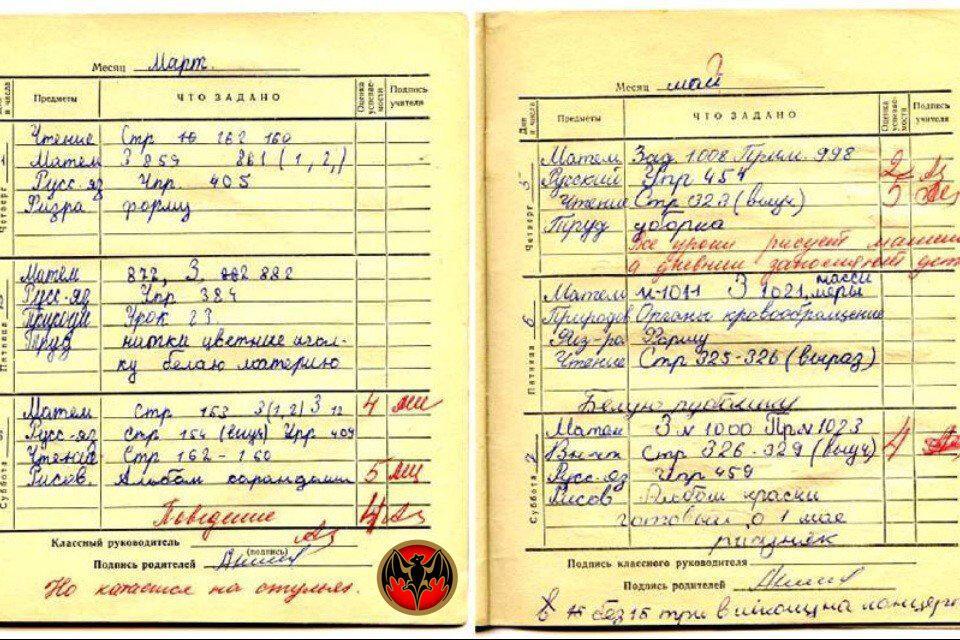 Месяц Март
Дни и числа Предметы ЧТО ЗАДАНО Оценка успеваемости Подпись учителя
Четверг 1
Чтение Стр 162 160
Матем З 859 861 (1, 2,)
Русс-яз Упр. 405
Физра форму
Пятница 2
Матем 872, З 882
Русс-яз Упр 384
Природ Урок 23
Труд нитки цветные игол-
ку белаю материю
Суббота 3
Матем Стр 153 3(1,2) З 12 4
Русс-яз Стр 154 (выуч) Упр 404
Чтение Стр 162-160
Рисов. Альбом карандаши 5
Поведение 4
Классный руководитель
(подпись)
Подпись родителей
Но катается на стульях.
Месяц май
Дни и числа Предметы ЧТО ЗАДАНО Оценка успеваемости Подпись учителя
Четверг 5
Матем Зад 1008 Прим. 998
Русский Упр 454 2
Чтение Стр 323 (выуч) 5
Труд уборка
Все уроки рисует машины
а дневник заполняют дети
Пятница 6
Матем №1011 З 1021, меры массы
Природов Органы кровообращение
Физ-ра Форму
Чтение Стр 325-326 (выраз)
Белую рубашку
Суббота 7
Матем З № 1000 Пр № 1023
Стр 326-329 (выуч) 4
Русс-яз Упр 459
Рисов Альбом краски
готовый о 1 мае
рисунек
Подпись классного руководителя
Подпись родителей
В без 15 три в школу на